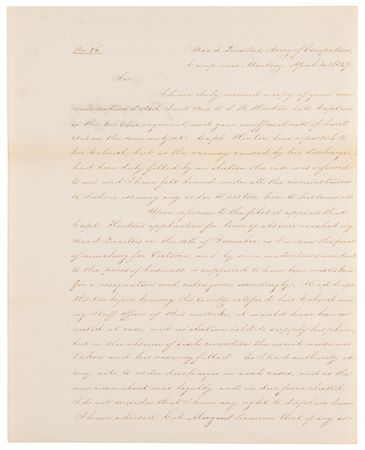 No. 26. Head Quarters, Army of Occupation,
Camp near Monterey, April 1847.
Sir,
I have duly received a copy of your com-
munication dated to S. B. Hinton late Captain
in the 2nd Ohio regiment and your unofficial note of
on the same subject. Capt. Hinton has reported to
his Colonel, but as the vacancy caused by his discharge
had been duly filled by an election the case was referred
to me, and I have felt bound under all the circumstances
to decline issuing any order to restore him to his command.
Upon reference to the files it appears that
Capt. Hinton's application for leave of absence reached my
Head Quarters on the 13th of December as I was on the point
of marching for Victoria, and by some inadvertence incident
to the press of business, is supposed to have been mistaken
for a resignation and orders given accordingly. Had Capt.
Hinton before leaving the country notified his Colonel or
my Staff officer of this mistake, it would have been cor-
rected at once, and no election held to supply his place;
but in the absence of such correction the usual course was
taken and his vacancy filled. As I had authority at
any rate to order discharges in such cases, and as the
new incumbent was legally and in due form elected,
I do not consider that I have any right to displace him.
I have advised Col. Morgan however that if any